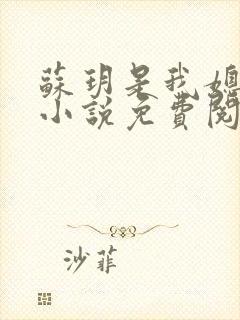 蘇玥是我媳
小說免費閱
沙菲